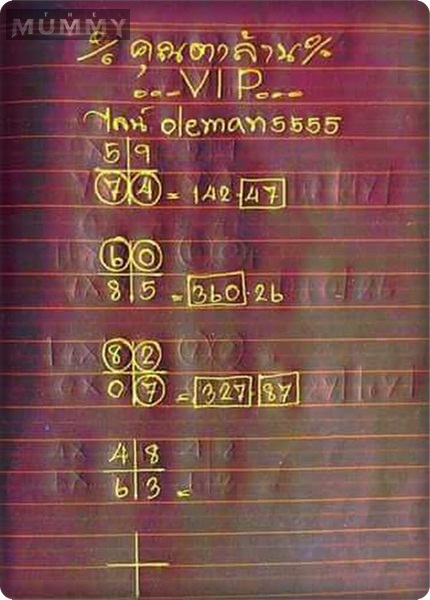 THE
MUMMY
% คุณตาล้าน %
...VIP...
ไลน์ oleman5555
5 9
7 4 = 142-47
6 0
8 5 = 360-26
8 2
0 7 = 327-87
4 8
6 3 =